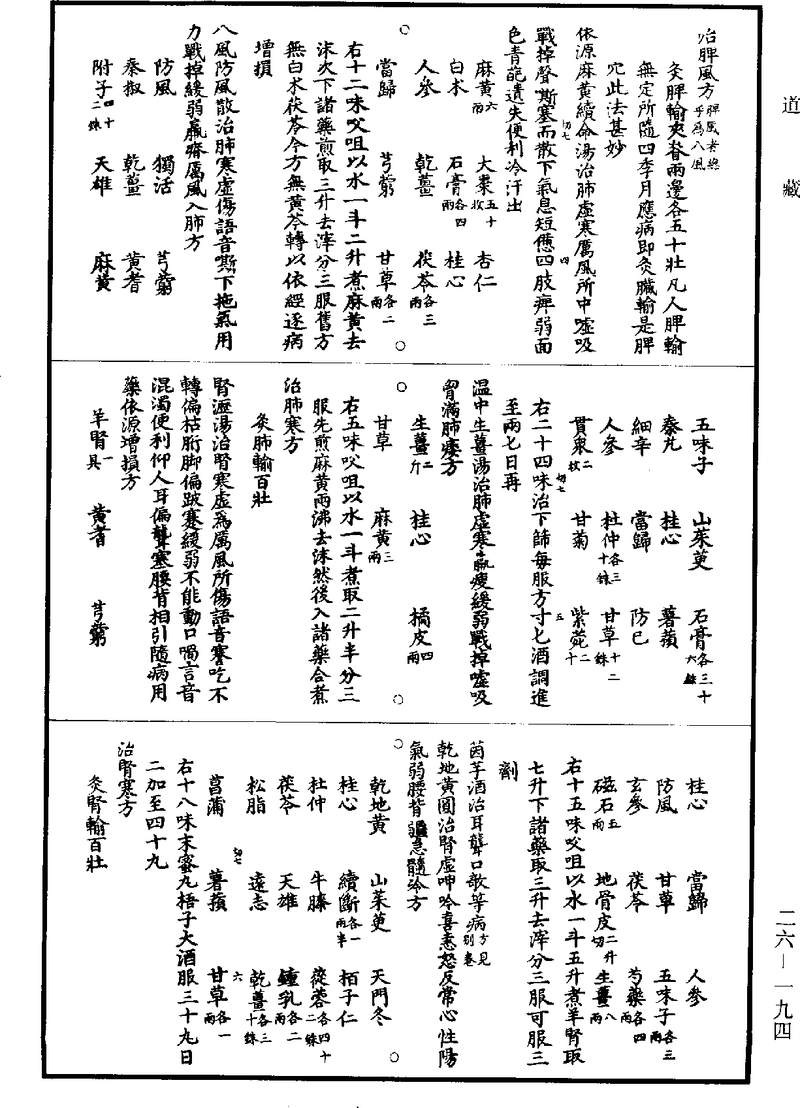 道藏
治脾風方脾風者總乎為八風
灸脾輸夾脊兩邊各五十壯凡人脾輸
無定所隨四季月應病即灸臟輸是脾
穴此法甚妙
依源麻黃續命湯治肺虛寒厲風所中噓吸
戰掉聲嘶塞而散下氣息短憊四肢痹弱面
色青葩遺失便利冷汗出
麻黃六兩 大棗五十枚 杏仁
白朮 石膏各四兩 桂心
人參 乾薑 茯苓各三兩
當歸 芎藭 甘草各二兩
右十二味㕮咀以水一斗二升煮麻黃去
沫次下諸藥煎取三升去滓分三服舊方
無白朮茯苓今方無黃芩轉以依經逐病
增損
八風防風散治肺寒虛傷語音嘶下拖氣用
力戰掉緩弱羸瘠厲風入肺方
防風 獨活 芎藭
秦椒 乾薑 黃耆
附子四十二銖 天雄 麻黃
五味子 山茱萸 石膏各三十六銖
秦艽 桂心 薯蕷
細辛 當歸 防巳
人參 杜仲各三十銖 甘草十二銖
貫衆二枚 甘菊 紫菀二十
右二十四味治下篩每服方寸匕酒調進
至兩匕日再
溫中生薑湯治肺虛寒羸瘦緩弱戰掉噓吸
胷滿肺痿方
生薑二斤 桂心 橘皮四兩
甘草 麻黃三兩
右五味㕮咀以水一斗煮取二升半分三
服先煎麻黃兩沸去沫然後入諸藥合煮
治肺寒方
灸肺輸百壯
腎瀝湯治腎寒虛為厲風所傷語音謇吃不
轉偏枯胻脚偏跛蹇緩弱不能動口喎言音
混濁便利仰人耳偏聾塞腰背相引隨病用
藥依源增損方
羊腎一具 黃耆 芎藭
桂心 當歸 人參
防風 甘草 五味子各三兩
玄參 茯苓 芍藥各四兩
磁石五兩 地骨皮二升切 生薑八兩
右十五味㕮咀以水一斗五升煮羊腎取
七升下諸藥取三升去滓分三服可服三
劑
茵芋酒治耳聾口欹等病方見别卷
乾地黃圓治腎虛呻吟喜恚怒反常心性陽
氣弱腰背彊急髓冷方
乾地黃 山茱萸 天門冬
桂心 續斷各一兩半 栢子仁
杜仲 牛膝 蓯蓉各四十二銖
茯苓 天雄 鍾乳各二兩
松脂 遠志 乾薑各三十銖
菖蒲 薯蕷 甘草各一兩
右十八味末蜜丸梧子大酒服三十九日
二加至四十九
治腎寒方
灸腎輸百壯
二六—一九四